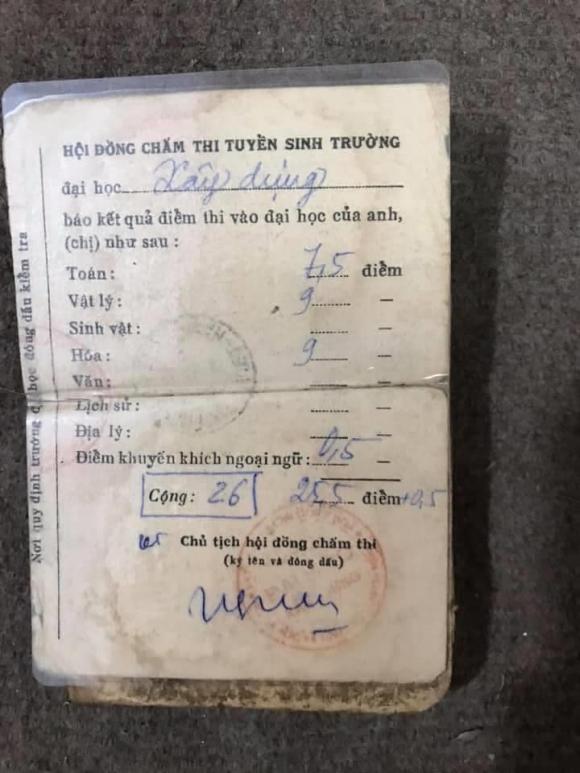 HỘI ĐỒNG CHẤM THI TUYỂN SINH TRƯỜNG
đại học Xây dựng
báo kết quả điểm thi vào đại học của anh,
(chị) như sau :
Toán : 7,5 điểm
Vật lý : 9 —
Sinh vật : —
Hóa : 9 —
Văn : —
Lịch sử : —
Địa lý : —
Điểm khuyến khích ngoại ngữ : 0,5 —
Cộng : 26 25,5 điểm +0,5
Chủ tịch hội đồng chấm thi
(ký tên và đóng dấu)
Nơi quy định trường đại học đóng dấu kiểm tra